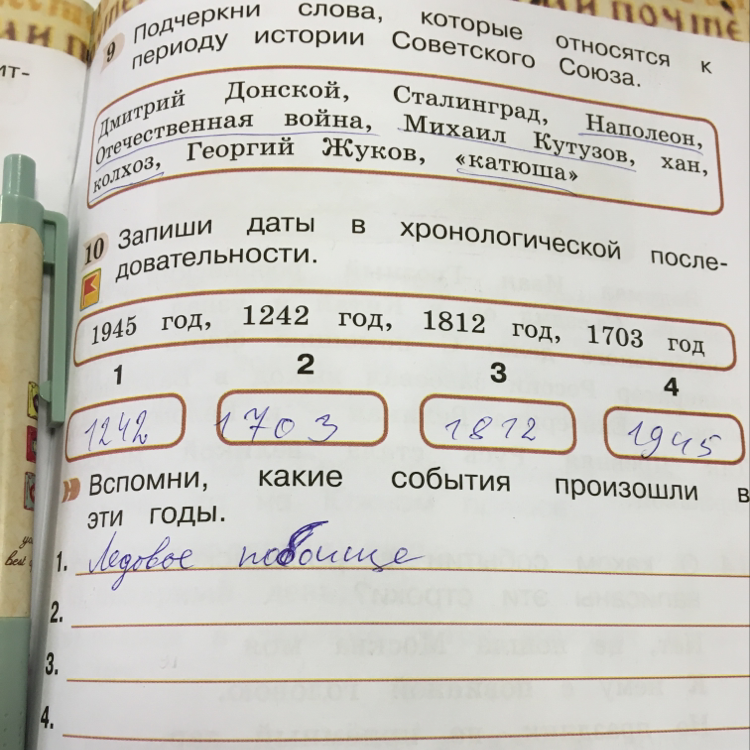 ит-
9 Подчеркни слова, которые относятся к
периоду истории Советского Союза.
Дмитрий Донской, Сталинград, Наполеон,
Отечественная война, Михаил Кутузов, хан,
колхоз, Георгий Жуков, «катюша»
10 Запиши даты в хронологической после-
довательности.
1945 год, 1242 год, 1812 год, 1703 год
1 2 3 4
1242 1703 1812 1945
Вспомни, какие события произошли в
эти годы.
1. Ледовое побоище
2.
3.
4.